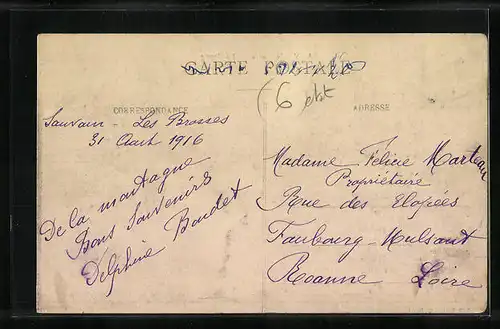 CARTE POSTALE
6
CORRESPONDANCE
ADRESSE
Sauvain - Les Brosses
31 Août 1916
De la montagne
Bons Souvenirs
Delphine Boudet
Madame Félicie Marteau
Propriétaire
Rue des
Faubourg-Mulsant
Roanne Loire